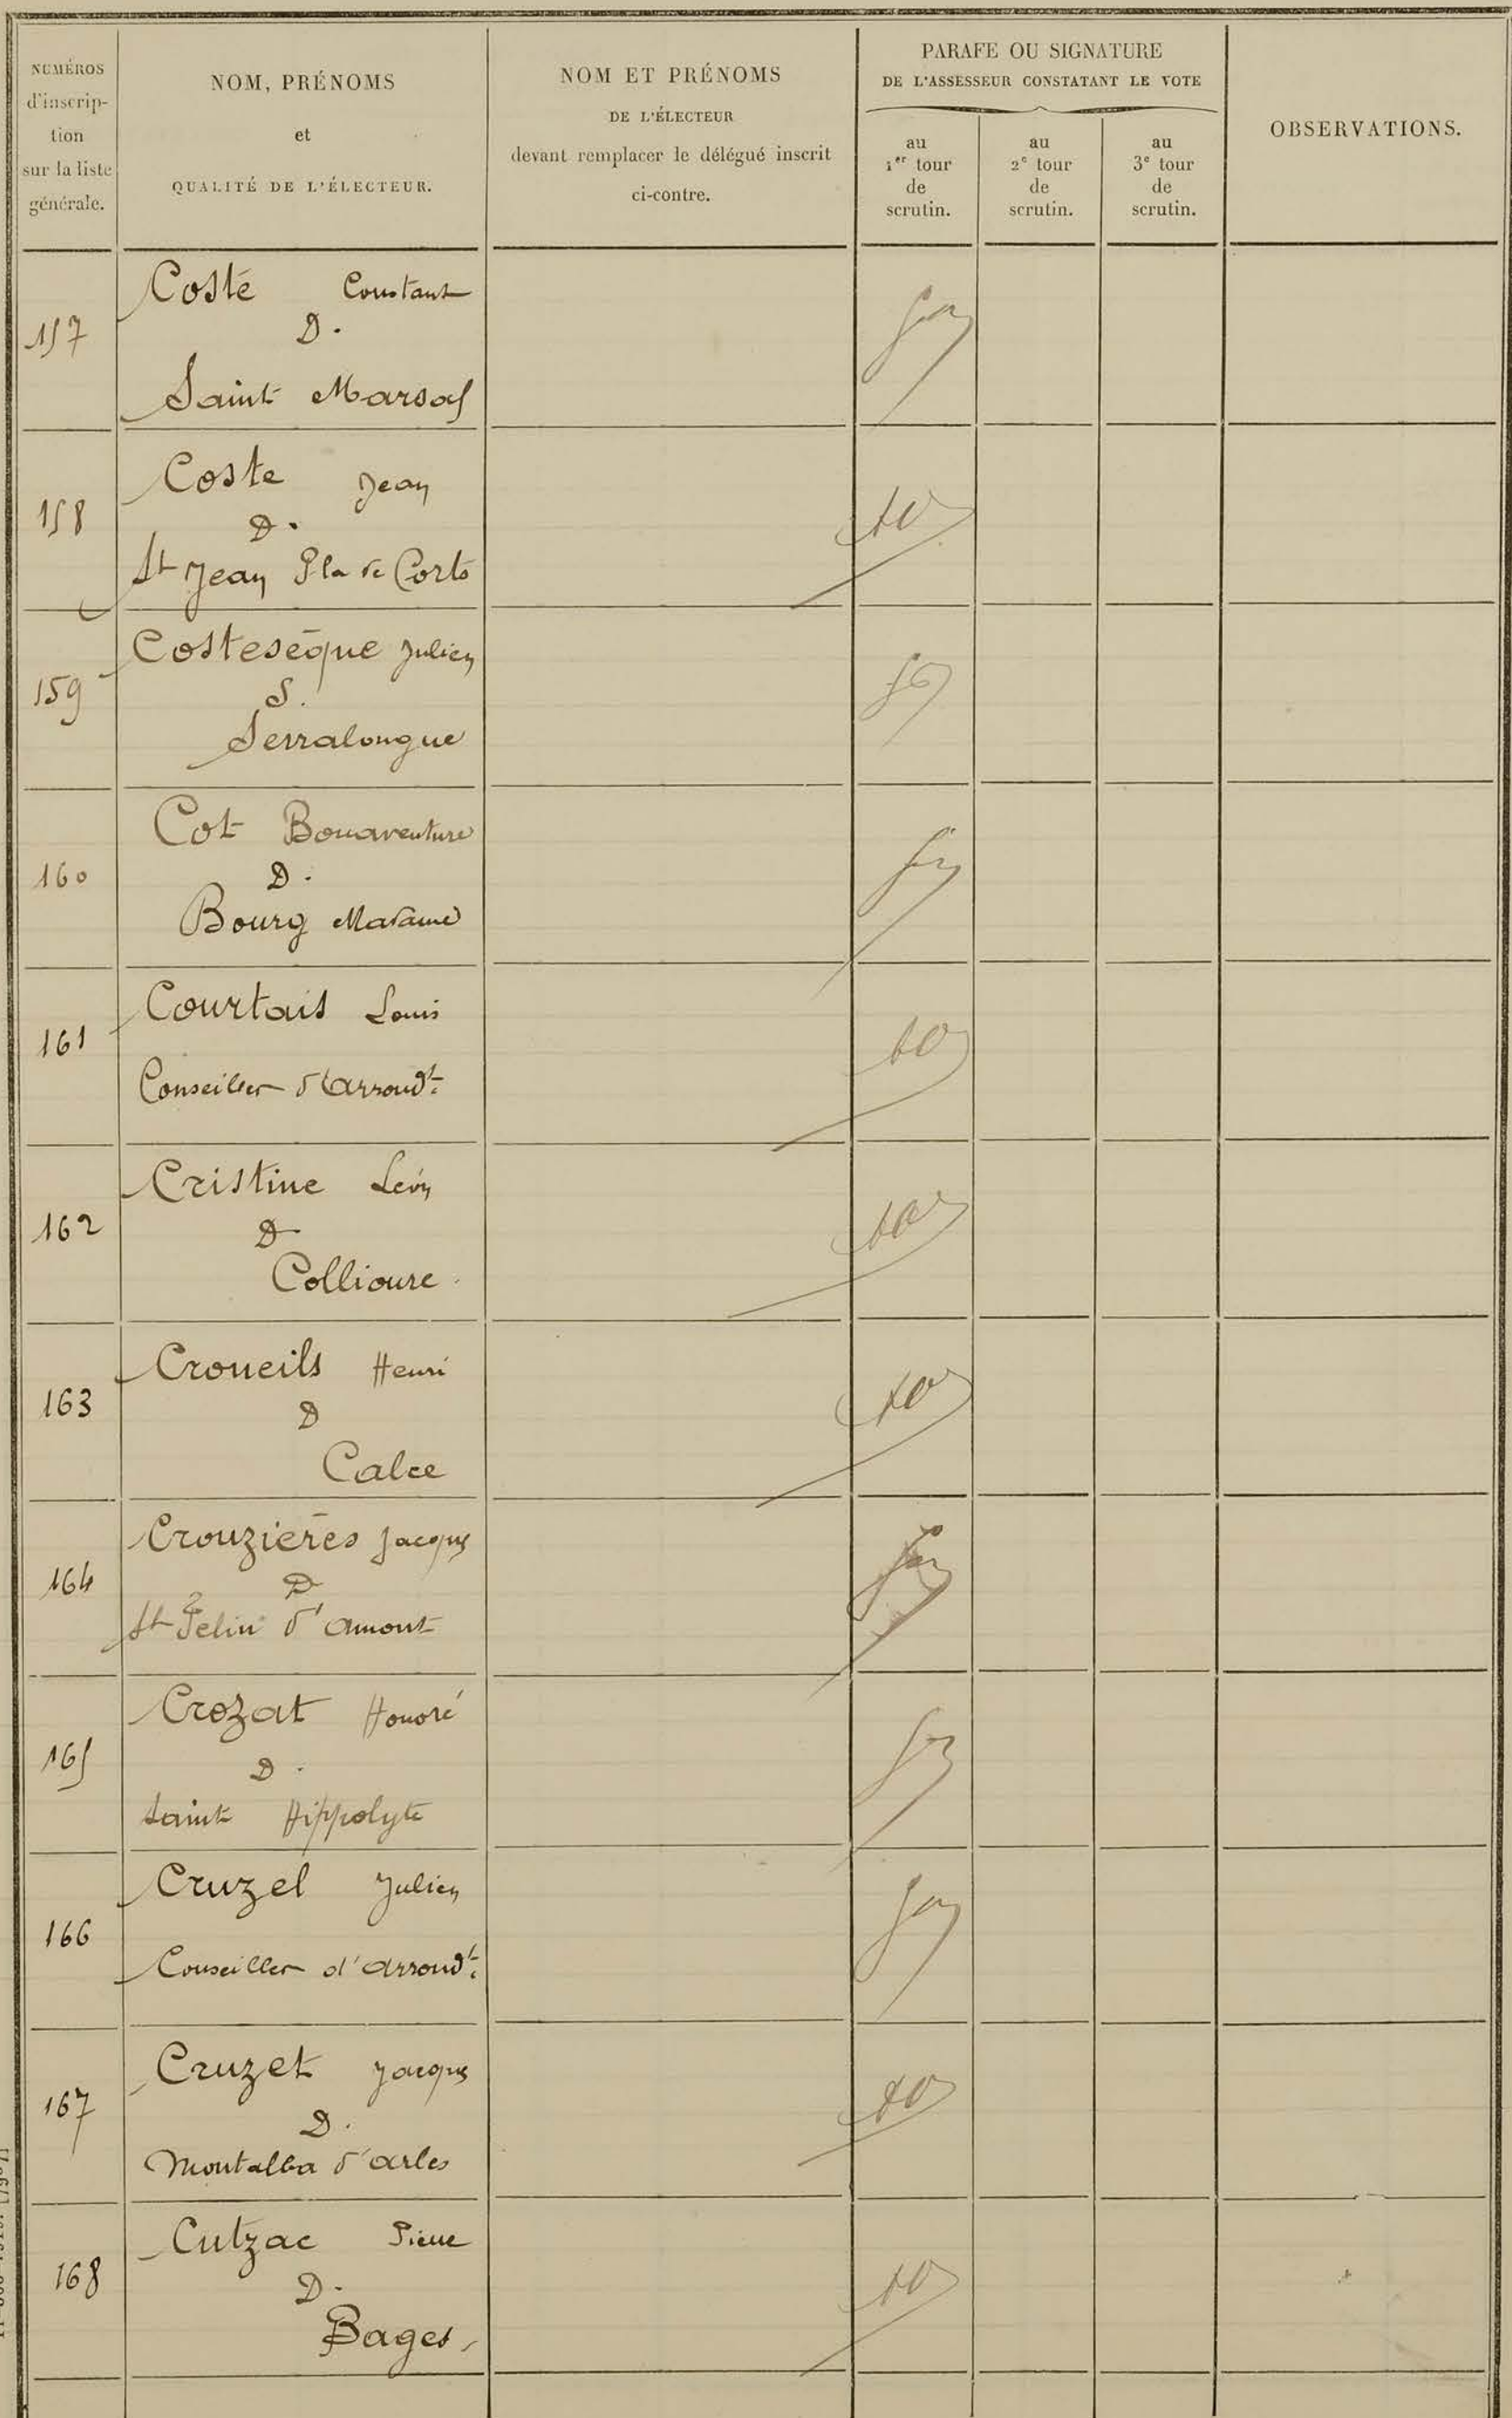 NUMÉROS
d'inscrip-
tion
sur la liste
générale.
NOM, PRÉNOMS
et
QUALITÉ DE L'ÉLECTEUR.
NOM ET PRÉNOMS
DE L'ÉLECTEUR
devant remplacer le délégué inscrit
ci-contre.
PARAFE OU SIGNATURE
DE L'ASSESSEUR CONSTATANT LE VOTE
au
1er tour
de
scrutin.
au
2e tour
de
scrutin.
au
3e tour
de
scrutin.
OBSERVATIONS.
157
Coste Constant
D.
Saint Marsal
158
Coste Jean
D.
St Jean Pla de Corts
159
Costeséque Julien
S.
Serralongue
160
Cot Bonaventure
D.
Bourg Madame
161
Courtais Louis
Conseiller d'Arrondt.
162
Cristine Léon
D
Collioure.
163
Croueils Henri
D
Calce
164
Crouzières Jacques
D
St Felin d'amont
165
Crozat Honoré
D.
Saint Hippolyte
166
Cruzel Julien
Conseiller d'arrondt.
167
Cruzet Jacques
D.
Montalba d'arles
168
Cutzac Pierre
D.
Bages